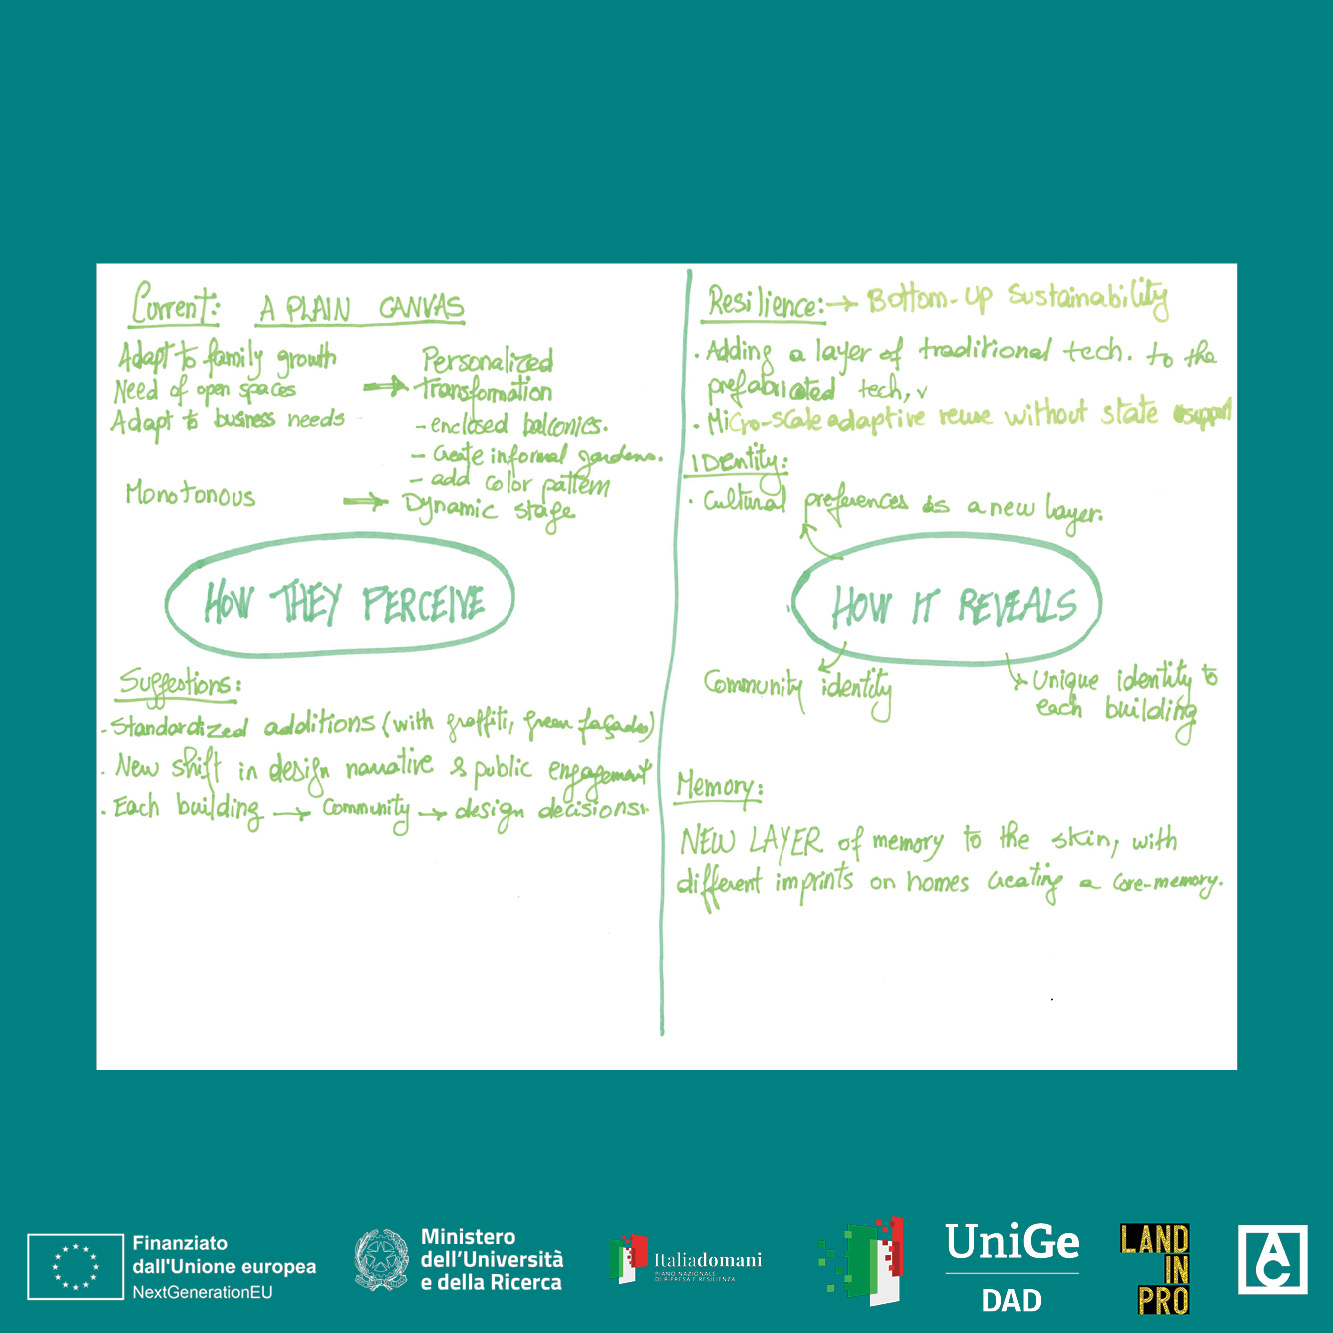 Current: A PLAIN CANVAS
Adapt to family growth
Need of open spaces
Adapt to business needs
Personalized
transformation
- enclosed balconies.
- create informal gardens.
- add color pattern
Monotonous
Dynamic stage
HOW THEY PERCEIVE
Suggestions:
. Standardized additions (with graffiti, green façades)
. New shift in design narrative & public engagement
. Each building → Community → design decisions.
Resilience: → Bottom-up sustainability
. Adding a layer of traditional tech. to the
prefabricated tech,
. Micro-scale adaptive reuse without state support
IDentity:
. Cultural preferences as a new layer.
HOW IT REVEALS
Community identity
Unique identity to
each building
Memory:
NEW LAYER of memory to the skin, with
different imprints on homes creating a core-memory.
Finanziato
dall'Unione europea
NextGenerationEU
Ministero
dell'Università
e della Ricerca
Italiadomani
PIANO NAZIONALE
DI RIPRESA E RESILIENZA
UniGe
DAD
LAND
IN
PRO
AC